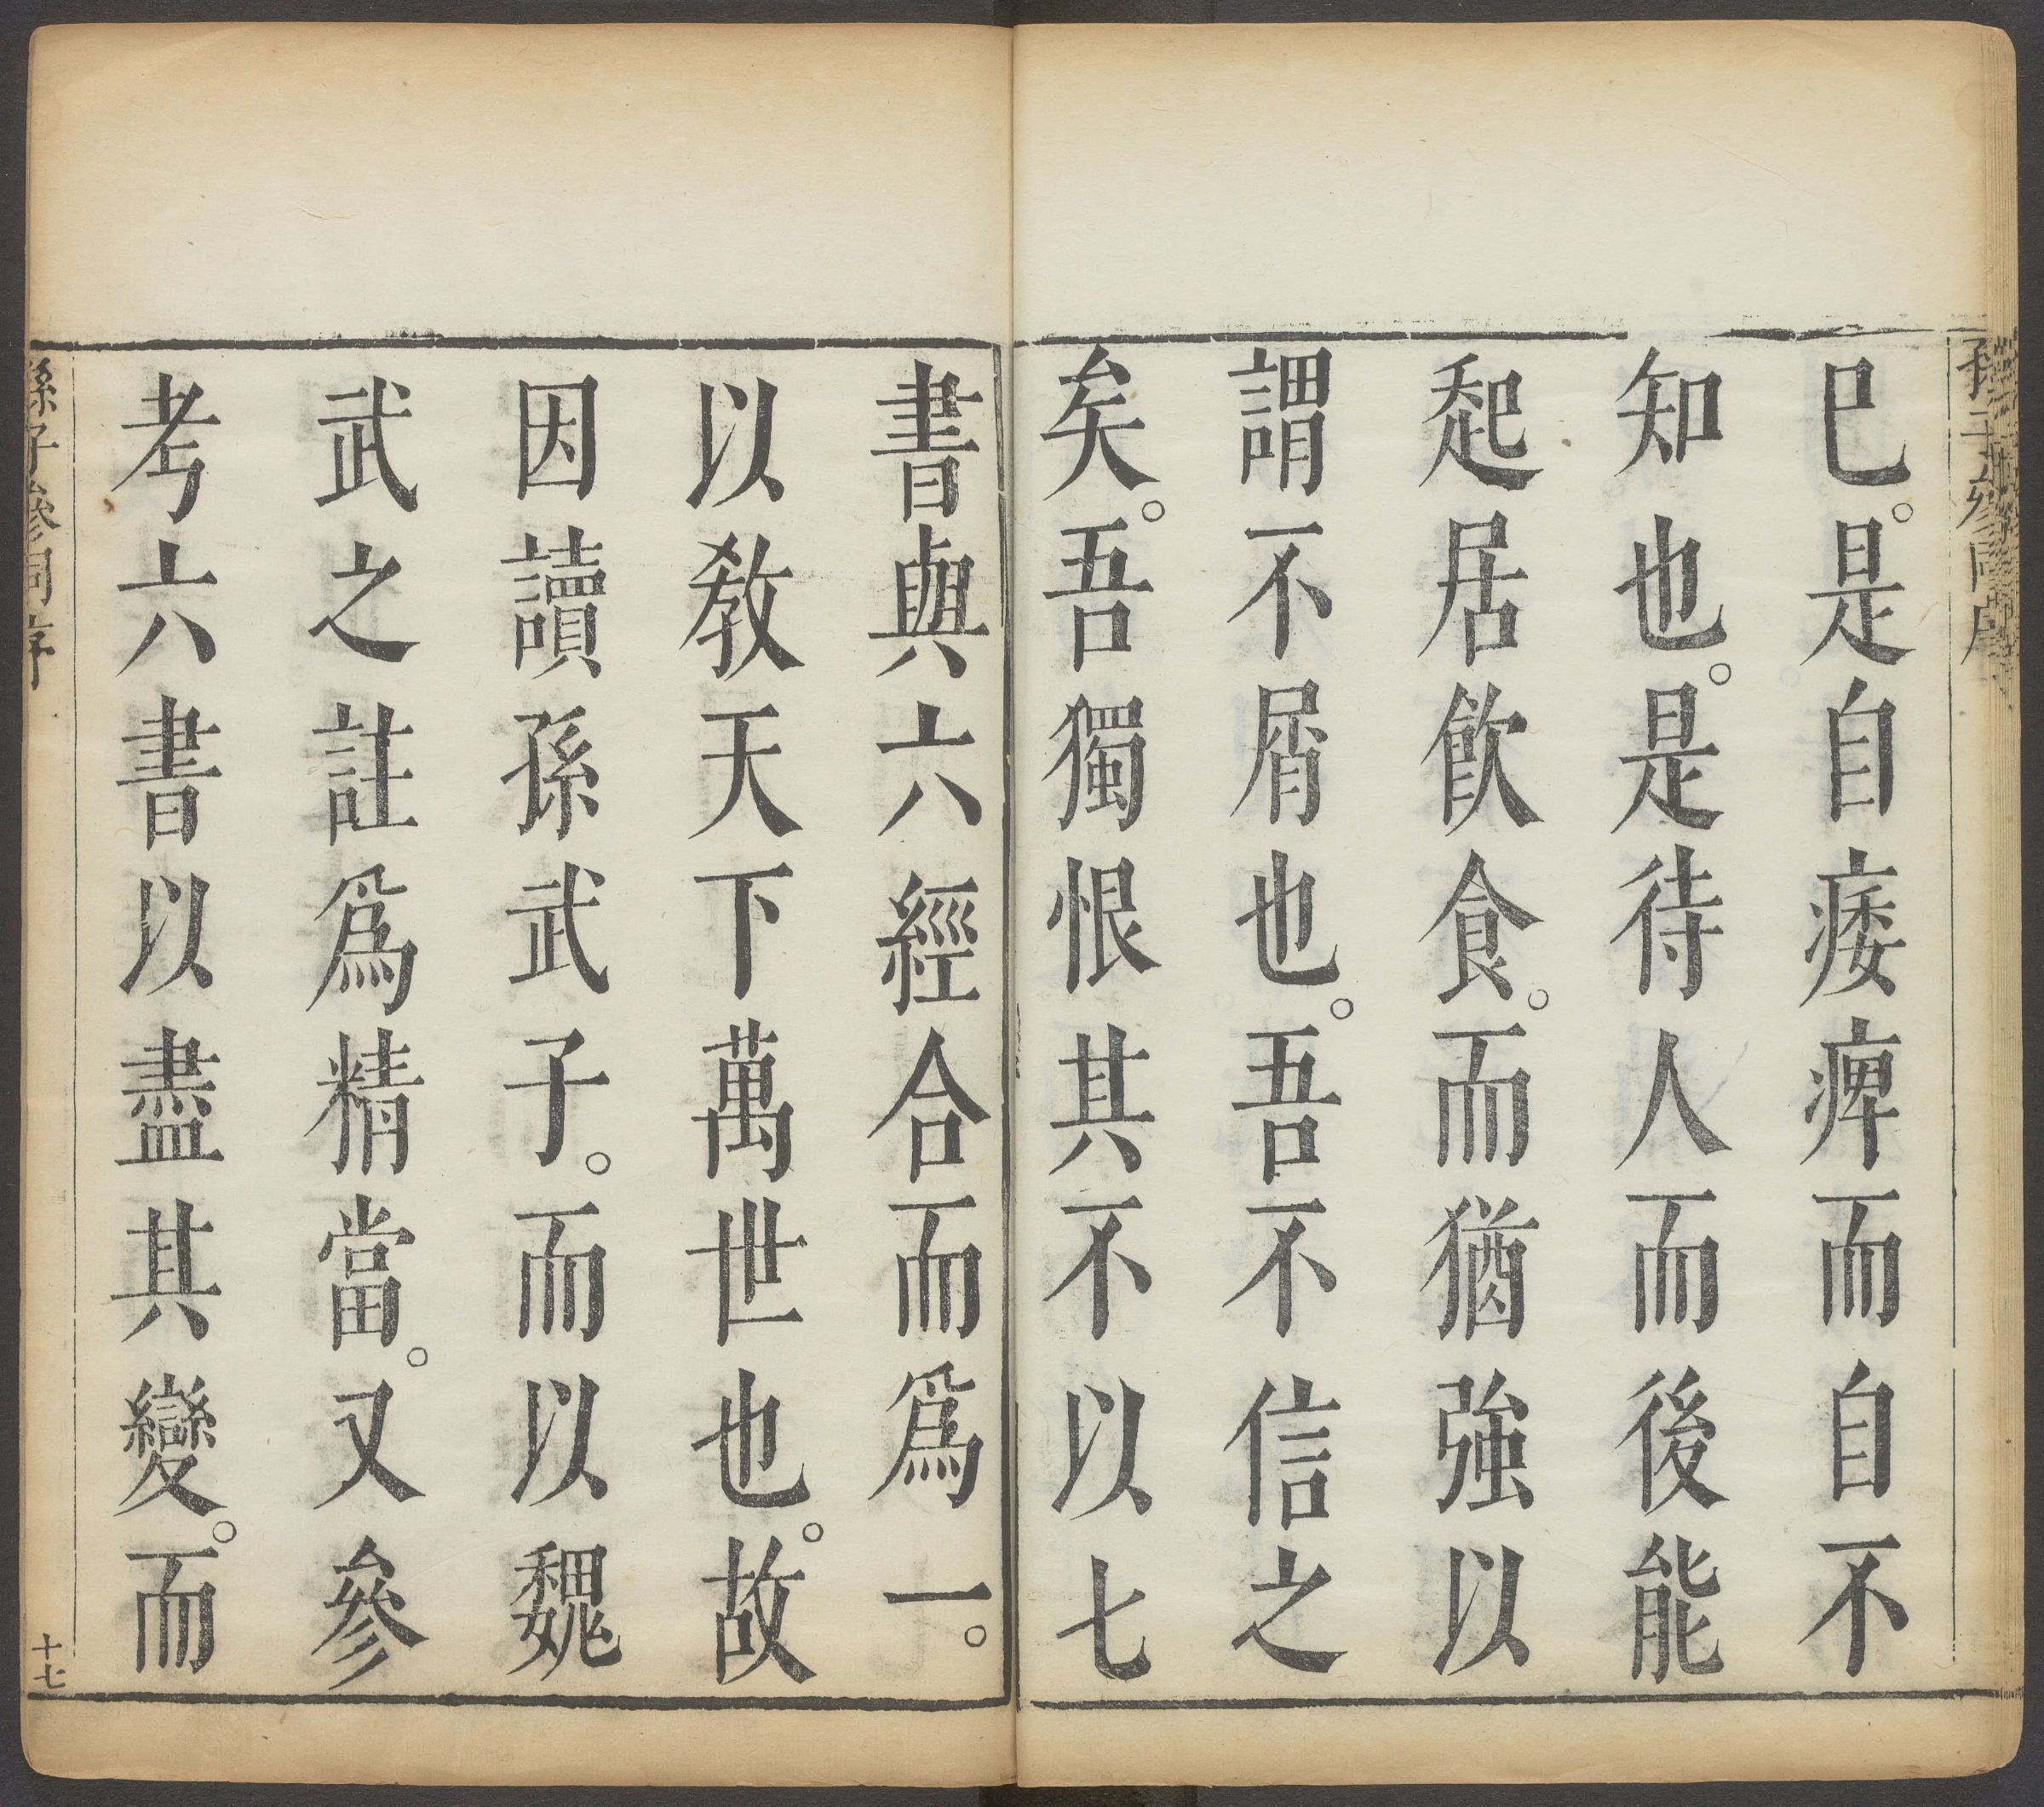 孫子參同序
已。是自痿痺而自不
知也。是待人而後能
起居飲食。而猶強以
謂不屑也。吾不信之
矣。吾獨恨其不以七
書與六經合而爲一。
以教天下萬世也。故
因讀孫武子。而以魏
武之註爲精當。又參
考六書以盡其變。而
孫子參同序
十七